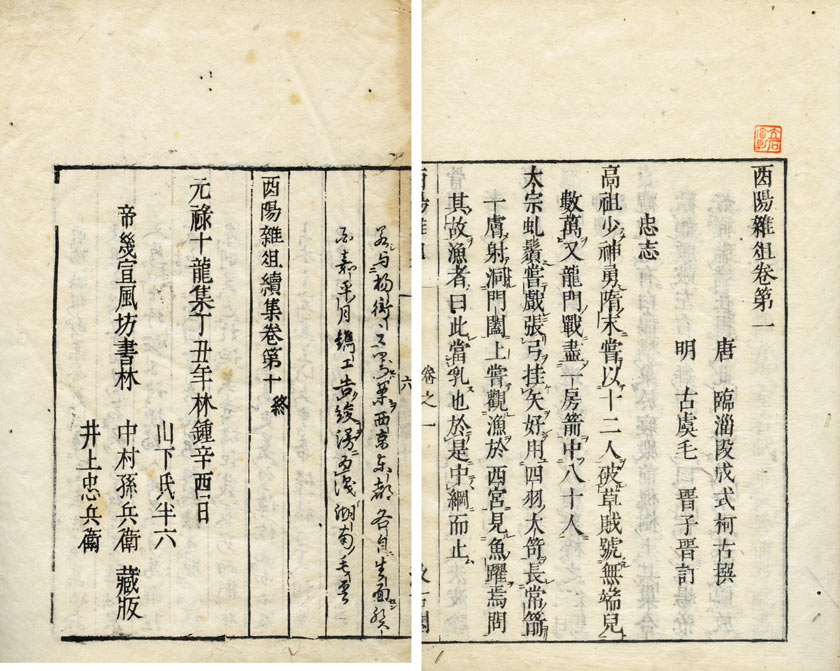 酉陽雜俎卷第一
唐 臨淄段成式柯古撰
明 古虞毛 晉子晉訂
忠志
高祖少神勇隋末嘗以十二人破草賊號無端兒
數萬又龍門戰盡一房箭中八十人
太宗虬鬚嘗戲張弓挂矢好用四羽大笴長常箭
一膚射洞門闔上嘗觀漁於西宮見魚躍焉問
其故漁者曰此當乳也於是中網而止
卷之一
六
西京東都各自生面
嘉平月鐫工告竣湖南毛晉
酉陽雜俎續集卷第十終
元祿十龍集丁丑年林鍾辛酉日
帝畿宣風坊書林
山下氏半六
中村孫兵衛 藏版
井上忠兵衛